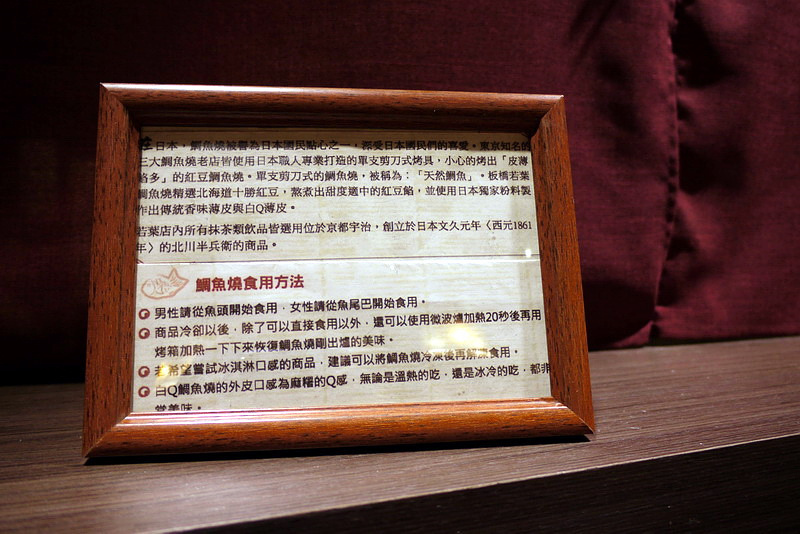 在日本，鯛魚燒被譽為日本國民點心之一，深受日本國民們的喜愛。東京知名的
三大鯛魚燒老店皆使用日本職人專業打造的單支剪刀式烤具，小心的烤出「皮薄
多」的紅豆鯛魚燒。單支剪刀式的鯛魚燒，被稱為：「天然鯛魚」。板橋若葉
鯛魚燒精選北海道十勝紅豆，熬煮出甜度適中的紅豆餡，並使用日本獨家粉料製
作出傳統香味薄皮與白Q薄皮。
若葉店內所有抹茶類飲品皆選用位於京都宇治，創立於日本文久元年〈西元1861
年〉的北川半兵衛的商品。
鯛魚燒食用方法
男性請從魚頭開始食用，女性請從魚尾巴開始食用。
商品冷卻以後，除了可以直接食用以外，還可以使用微波爐加熱20秒後再用
烤箱加熱一下下來恢復鯛魚燒剛出爐的美味。
若希望嘗試冰淇淋口感的商品，建議可以將鯛魚燒冷凍後再解凍食用。
白Q鯛魚燒的外皮口感為麻糬的Q感，無論是溫熱的吃，還是冰冷的吃，都非
常美味。